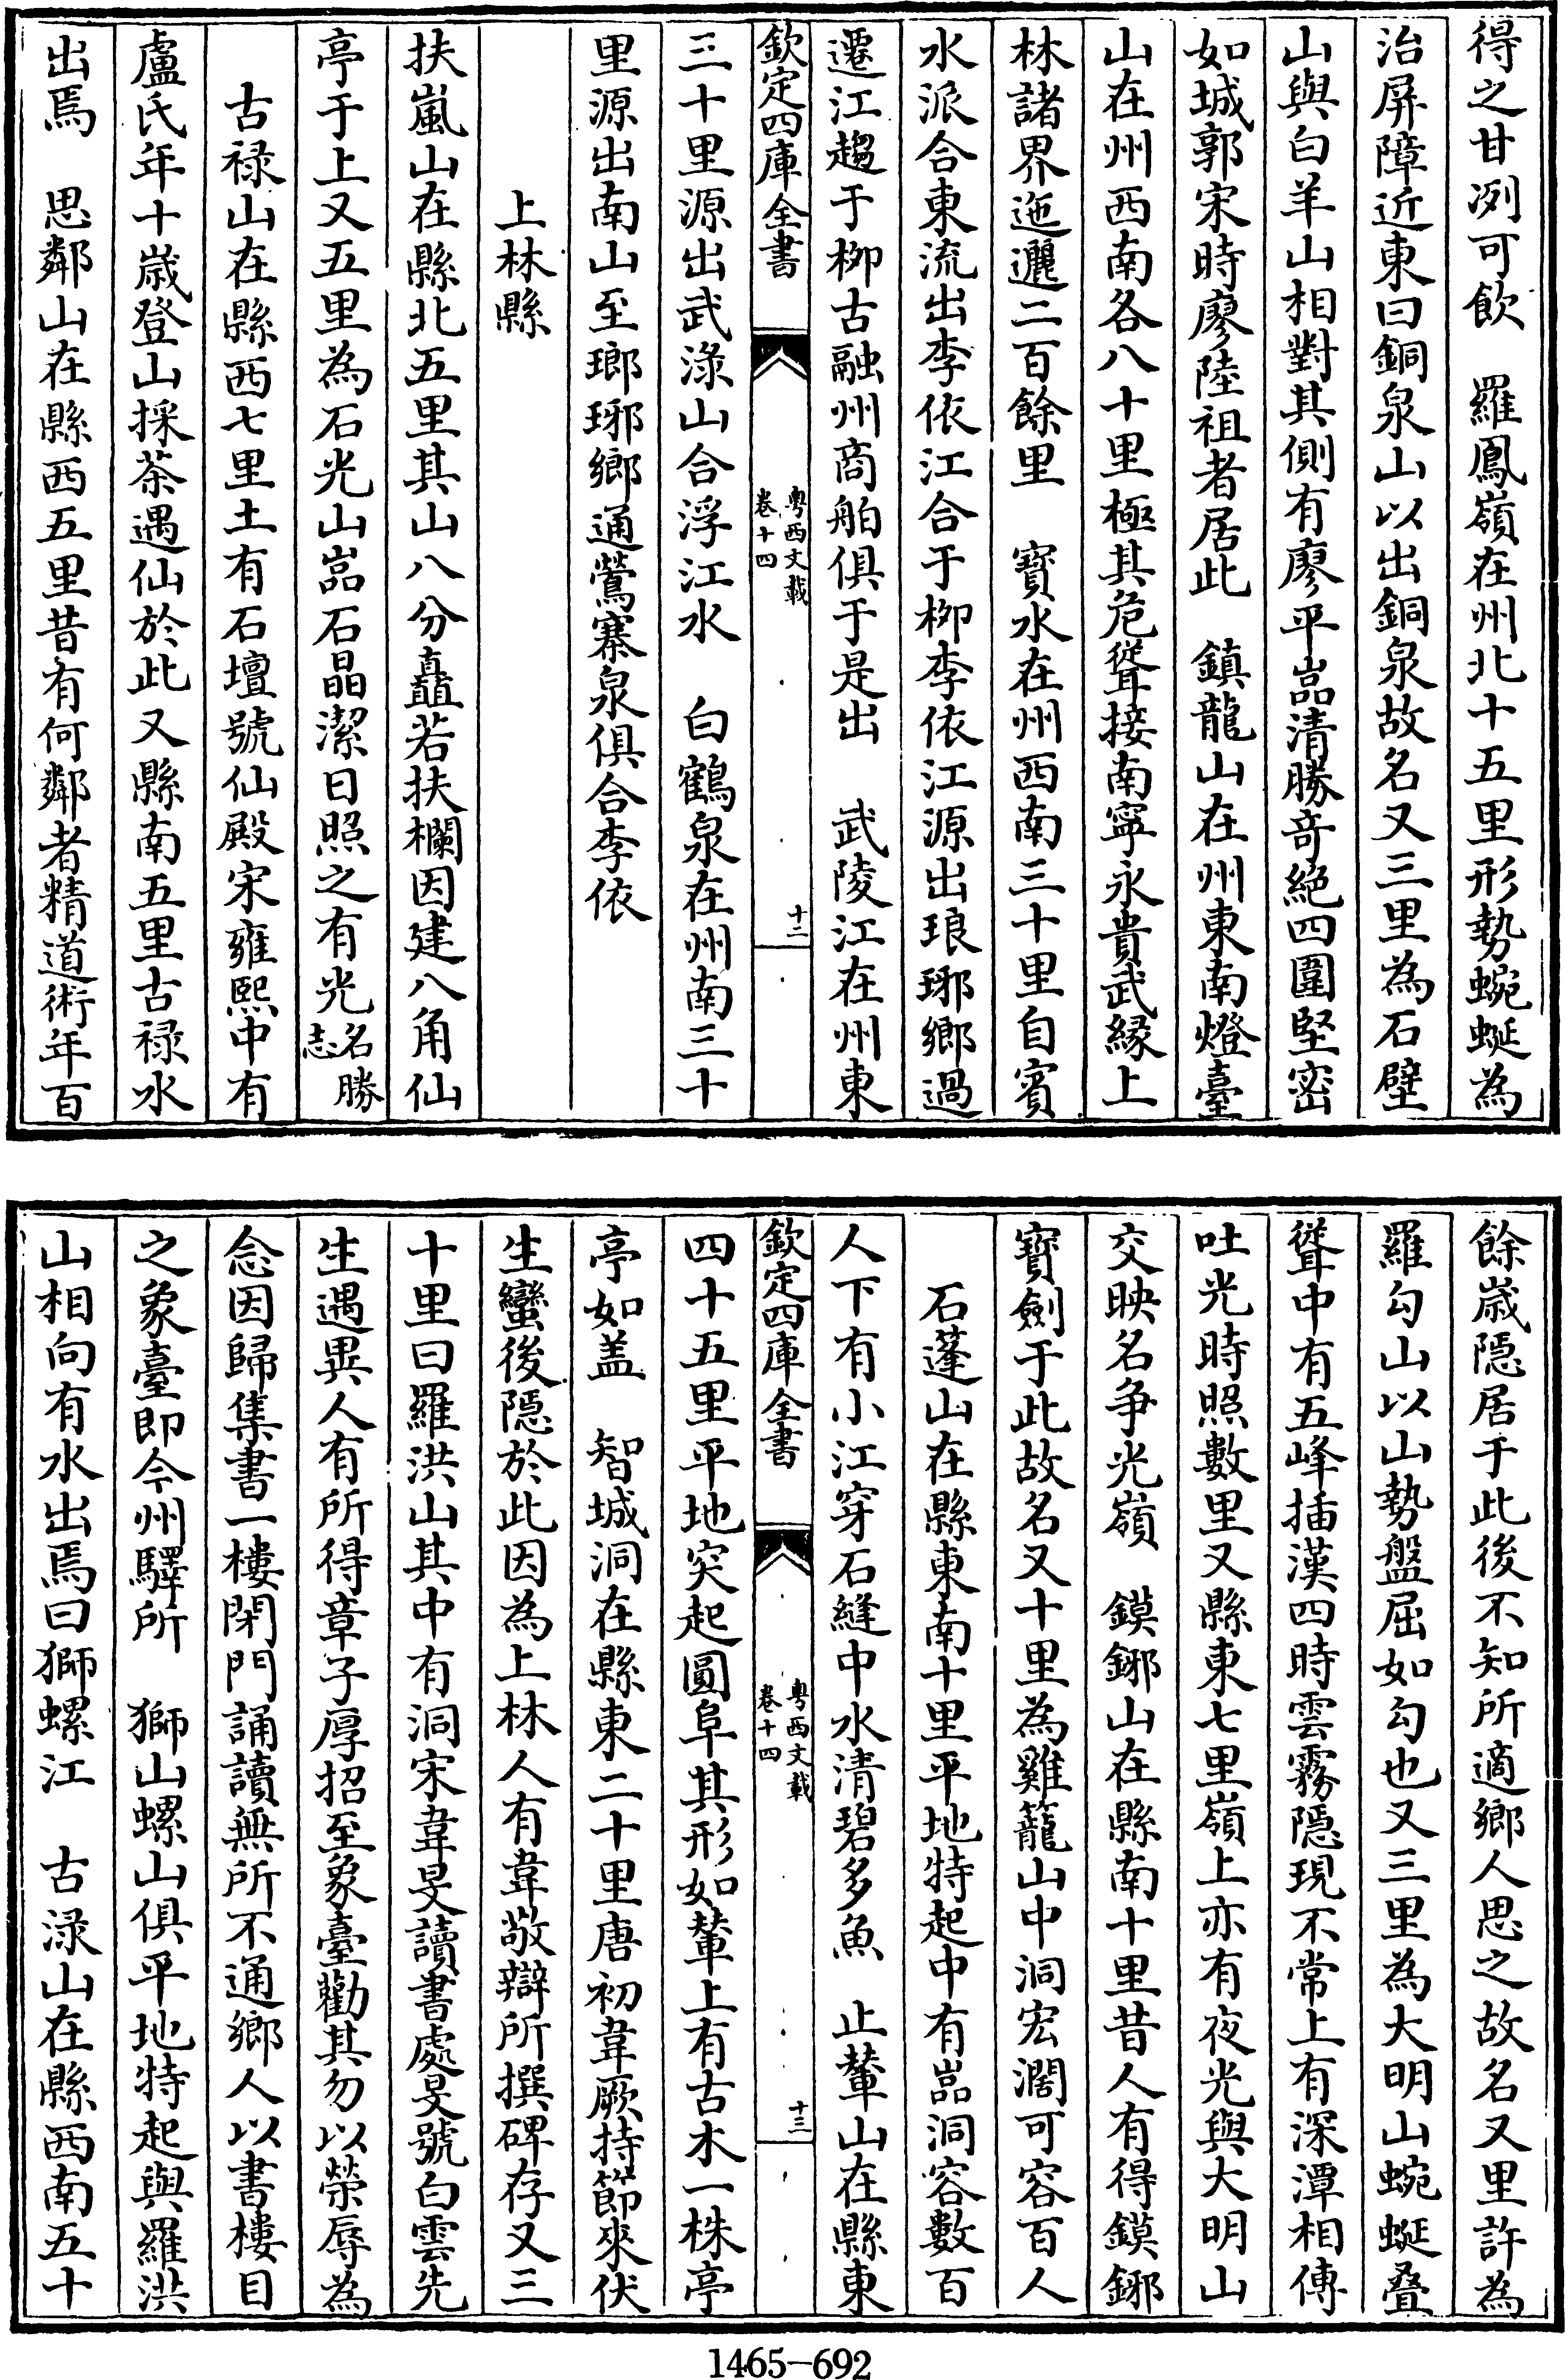 得之甘冽可飲　羅鳳嶺在州北十五里形勢蜿蜒為
治屏障近東曰銅泉山以出銅泉故名又三里為石壁
山與白羊山相對其側有廖平嵓清勝奇絕四圍堅密
如城郭宋時廖陸祖者居此　鎮龍山在州東南燈臺
山在州西南各八十里極其危聳接南寧永貴武緣上
林諸界迤邐二百餘里　寶水在州西南三十里自賓
水派合東流出李依江合于柳李依江源出琅琊鄉過
遷江趨于柳古融州商舶俱于是出　武陵江在州東
欽定四庫全書
粤西文載
卷十四
十二
三十里源出武淥山合浮江水　白鶴泉在州南三十
里源出南山至瑯琊鄉通鶯寨泉俱合李依
上林縣
扶嵐山在縣北五里其山八分矗若扶欄因建八角仙
亭于上又五里為石光山嵓石晶潔日照之有光名勝志
古禄山在縣西七里土有石壇號仙殿宋雍熙中有
盧氏年十嵗登山採茶遇仙於此又縣南五里古禄水
出焉　思鄰山在縣西五里昔有何鄰者精道術年百
餘嵗隠居于此後不知所適鄉人思之故名又里許為
羅勾山以山勢盤屈如勾也又三里為大明山蜿蜒叠
聳中有五峰插漢四時雲霧隠現不常上有深潭相傳
吐光時照數里又縣東七里嶺上亦有夜光與大明山
交映名争光嶺　鏌鋣山在縣南十里昔人有得鏌鋣
寶劍于此故名又十里為雞籠山中洞宏濶可容百人
石蓬山在縣東南十里平地特起中有嵓洞容數百
人下有小江穿石縫中水清碧多魚　止輦山在縣東
欽定四庫全書
粤西文載
卷十四
十三
四十五里平地突起圓阜其形如輦上有古木一株亭
亭如盖　智城洞在縣東二十里唐初韋厥持節來伏
生蠻後隠於此因為上林人有韋敬辯所撰碑存又三
十里曰羅洪山其中有洞宋韋旻讀書處旻號白雲先
生遇異人有所得章子厚招至象臺勸其勿以榮辱為
念因歸集書一樓閉門誦讀無所不通鄉人以書樓目
之象臺即今州驛所　獅山螺山俱平地特起與羅洪
山相向有水出焉曰獅螺江　古渌山在縣西南五十
1465-692